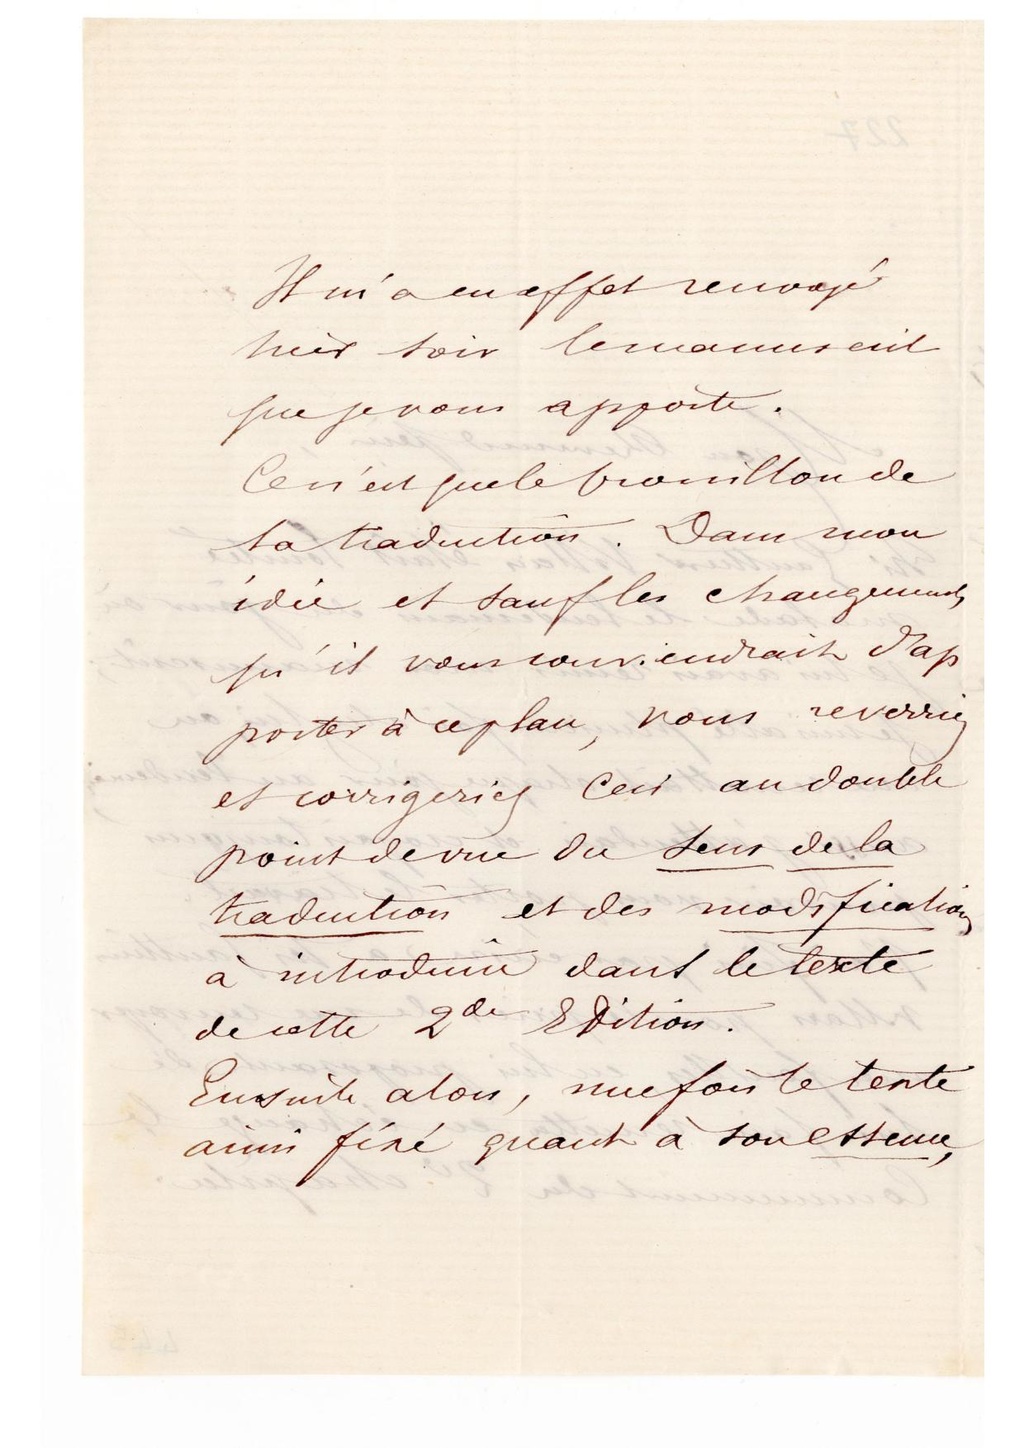 Il m'a en effet renvoyé
hier soir le manuscrit
que je vous apporte.
Ce n'est que le brouillon de
sa traduction. Dans mon
idée et sauf les changements
qu'il vous conviendrait d'ap
porter à ce plan, vous reverriez
et corrigeriez ceci au double
point de vue du sens de la
traduction et des modifications
à introduire dans le texte
de cette 2de Edition.
Ensuite alors, une fois le texte
ainsi fixé quant à son essence,